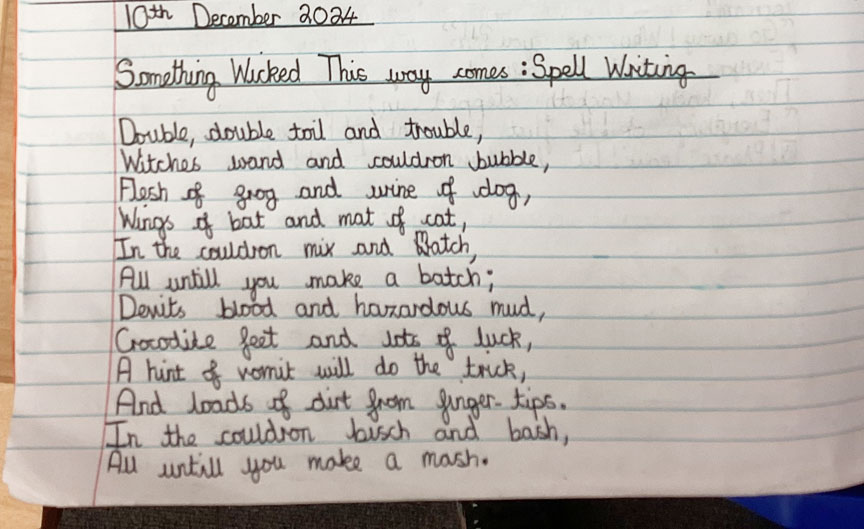 10th December 2024
Something Wicked This way comes: Spell Writing
Double, double toil and trouble,
Witches wand and couldron bubble,
Flesh of grog and urine of dog,
Wings of bat and mat of cat,
In the couldron mix and Batch,
All untill you make a batch;
Devits blood and hazardous mud,
Crocodile feet and lots of luck,
A hint of vomit will do the trick,
And loads of dirt from finger-tips.
In the couldron bisch and bash,
All untill you make a mash.